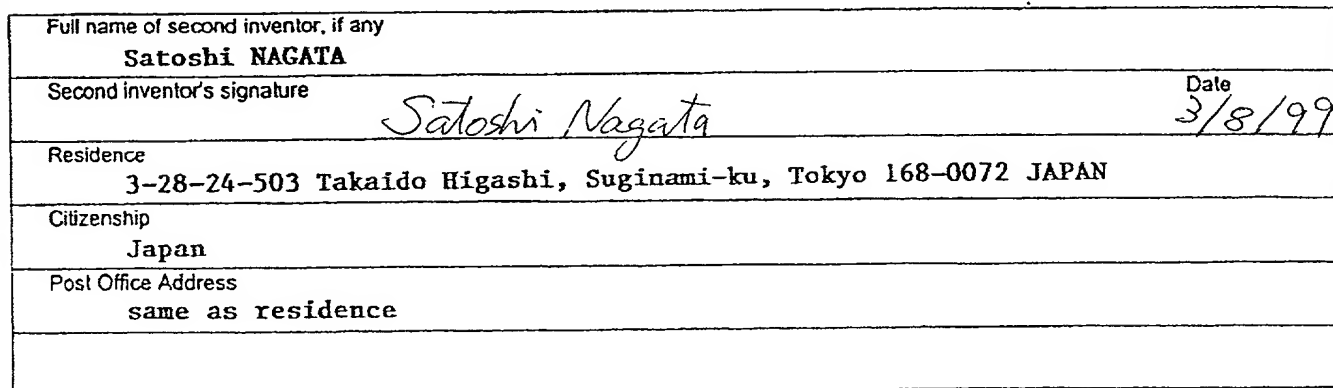 Full name of second inventor, if any
Satoshi NAGATA
Second inventor's signature
Date
Satoshi Nagata
3/8/99
Residence
3-28-24-503 Takaido Higashi, Suginami-ku, Tokyo 168-0072 JAPAN
Citizenship
Japan
Post Office Address
same as residence